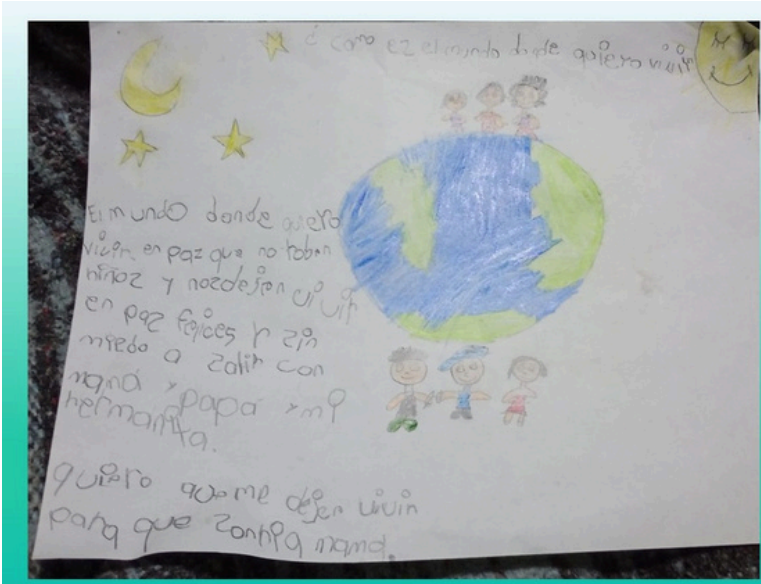 ¿ como ez el mundo donde quiero vivir
El mundo donde quiero
vivir en paz que no roben
niñoz y noz dejen vivir
en paz felices y zin
miedo a zalir con
mamá y papá y mi
hermanita.
quiero que me dejen vivir
para que zonria mamá.